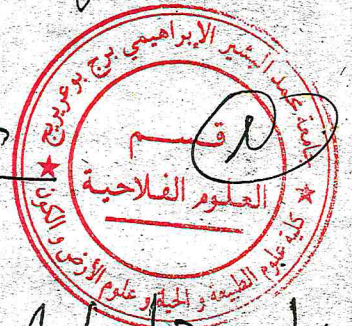 جامعة محمد البشير الإبراهيمي برج بوعريريج
قسم
العلوم الفلاحية
كلية علوم الطبيعة و الحياة و علوم الأرض و الكون